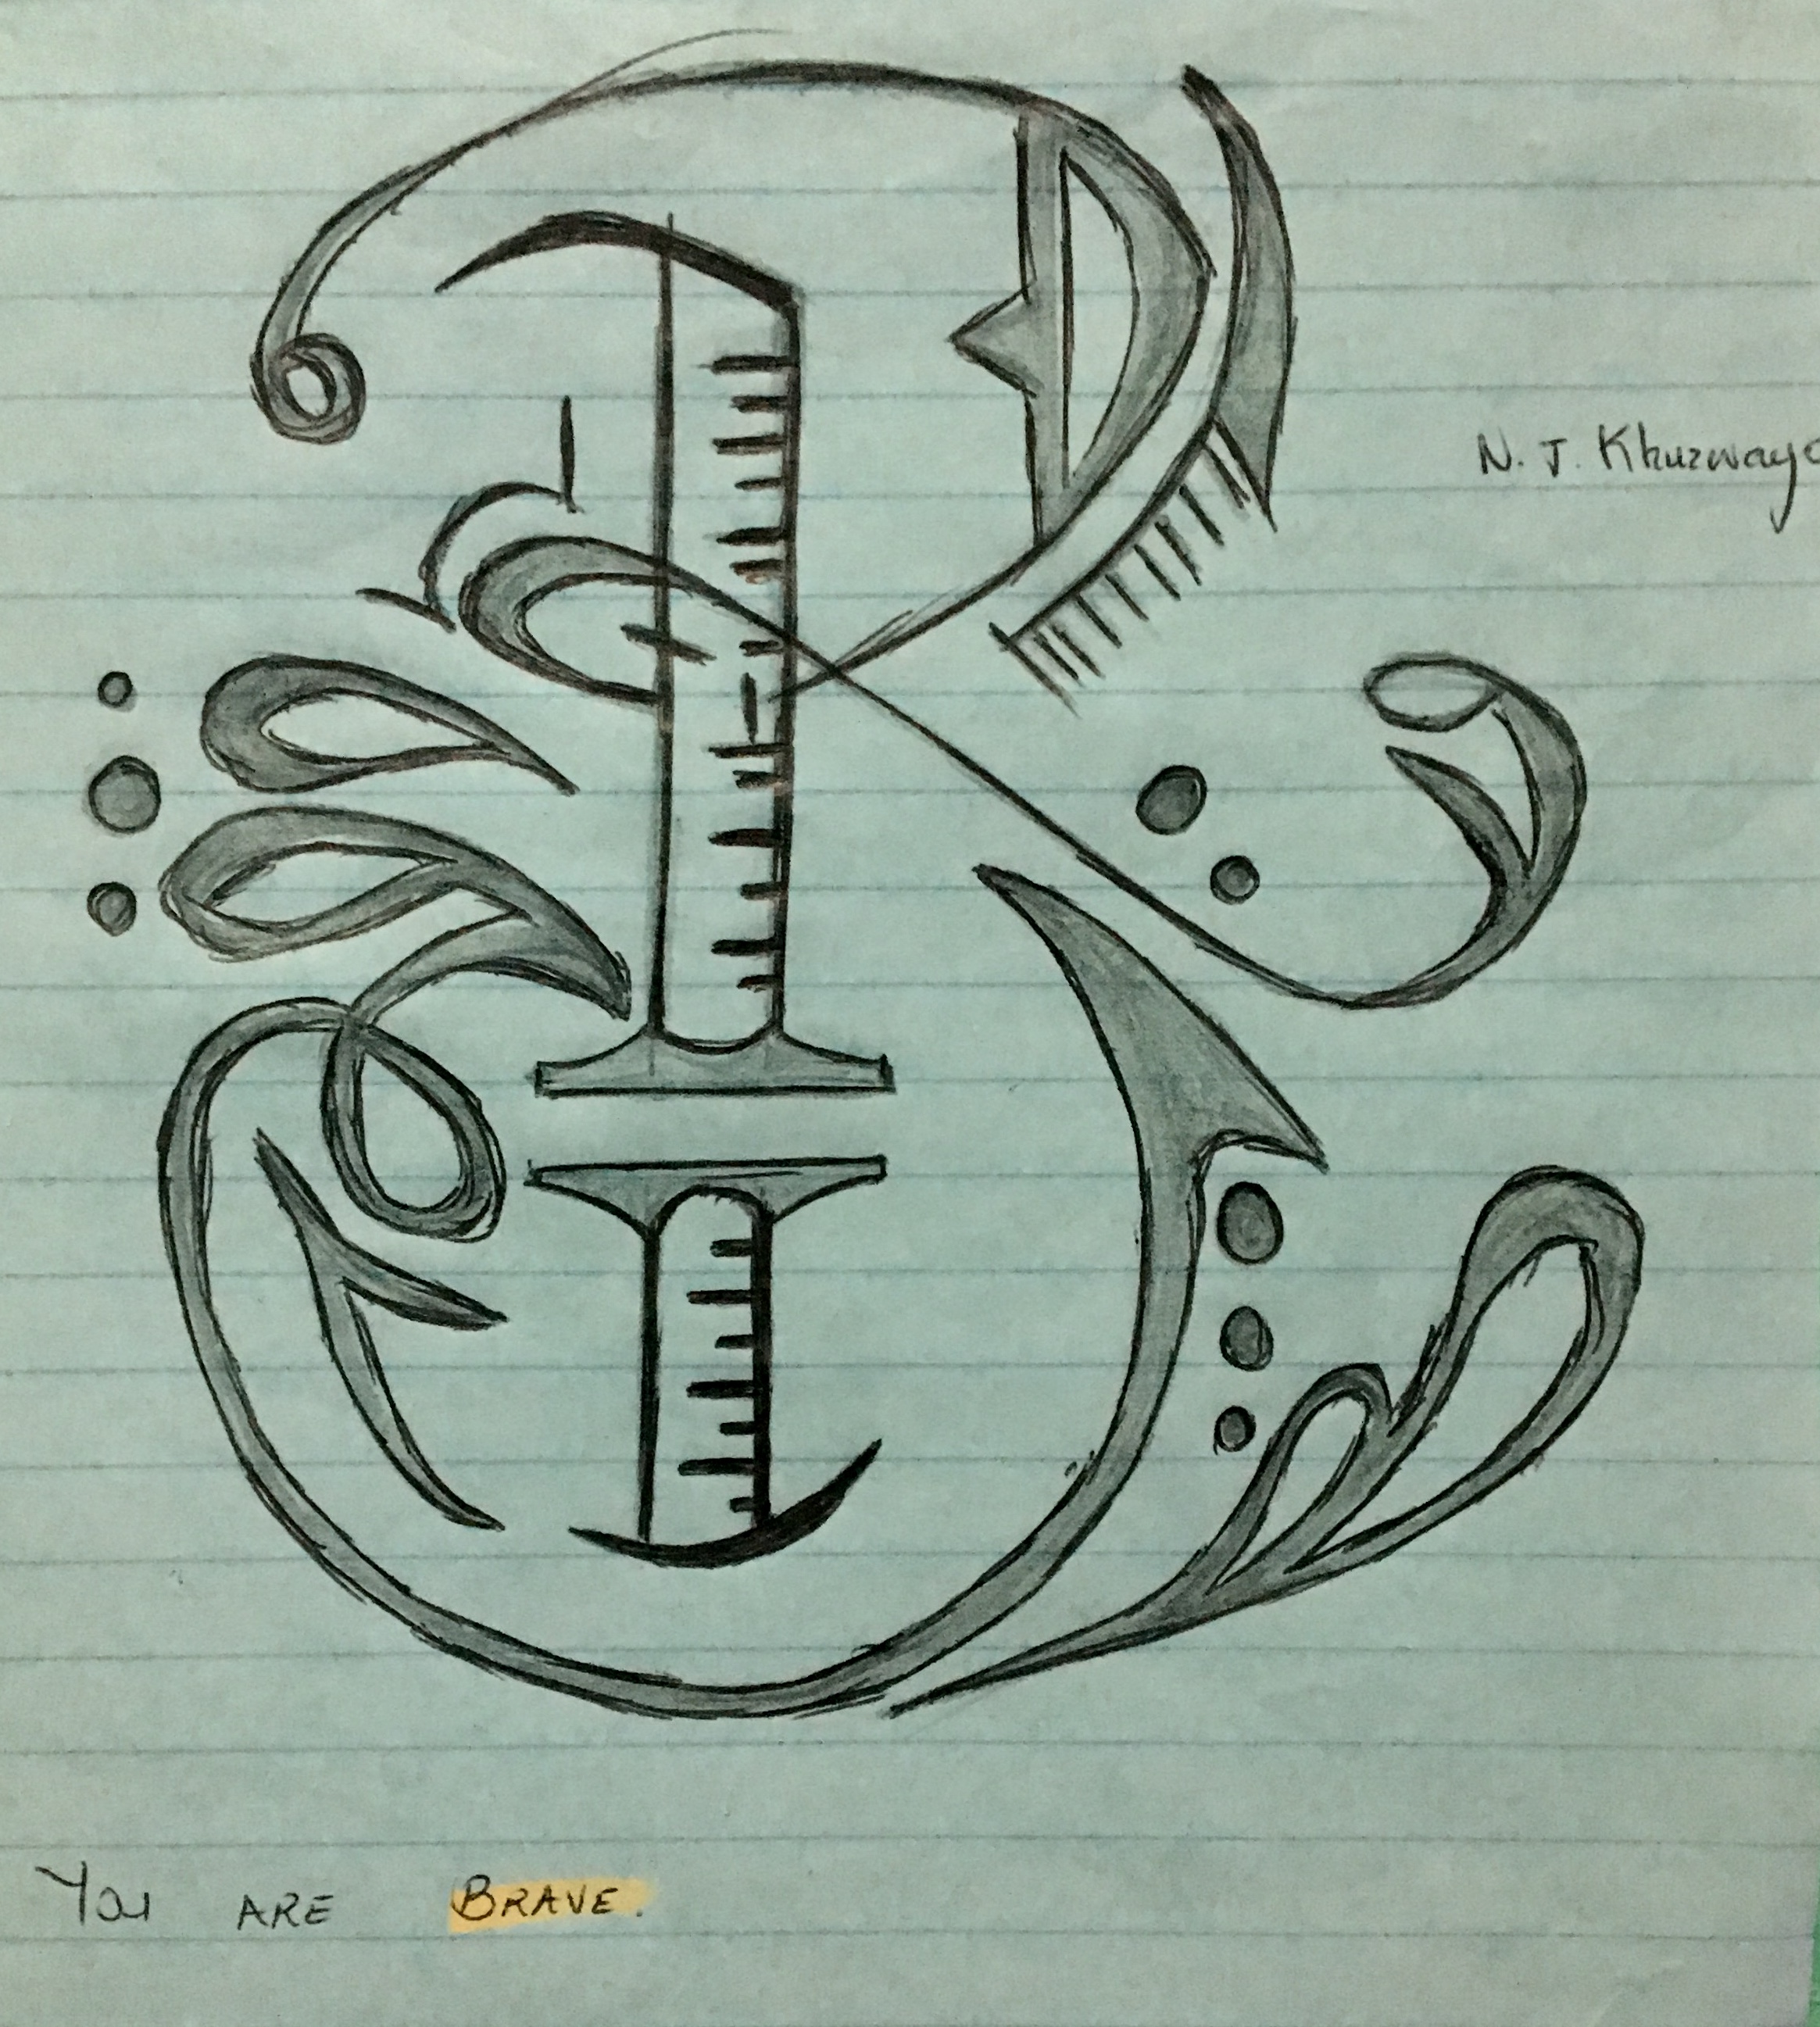 N. J. Khuzwayo
You ARE BRAVE.